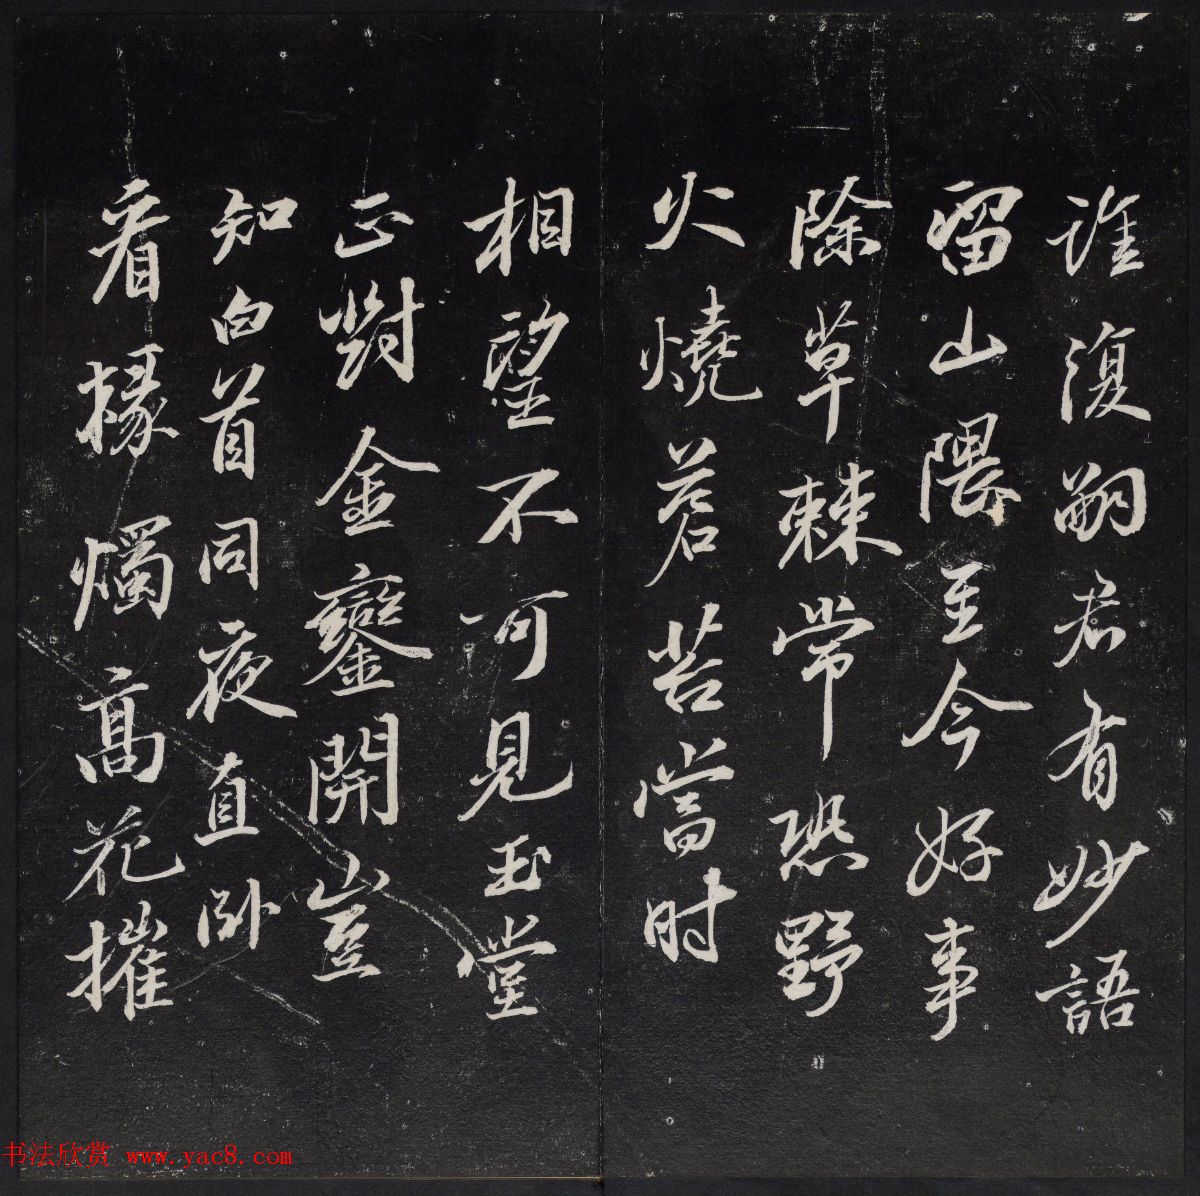 誰復嗣君有妙語
留山隈至今好事
除草棘常恐野
火燒蒼苔當時
相望不可見玉堂
正對金鑾開豈
知白首同夜直卧
看椽燭高花摧
书法欣赏 www.yac8.com